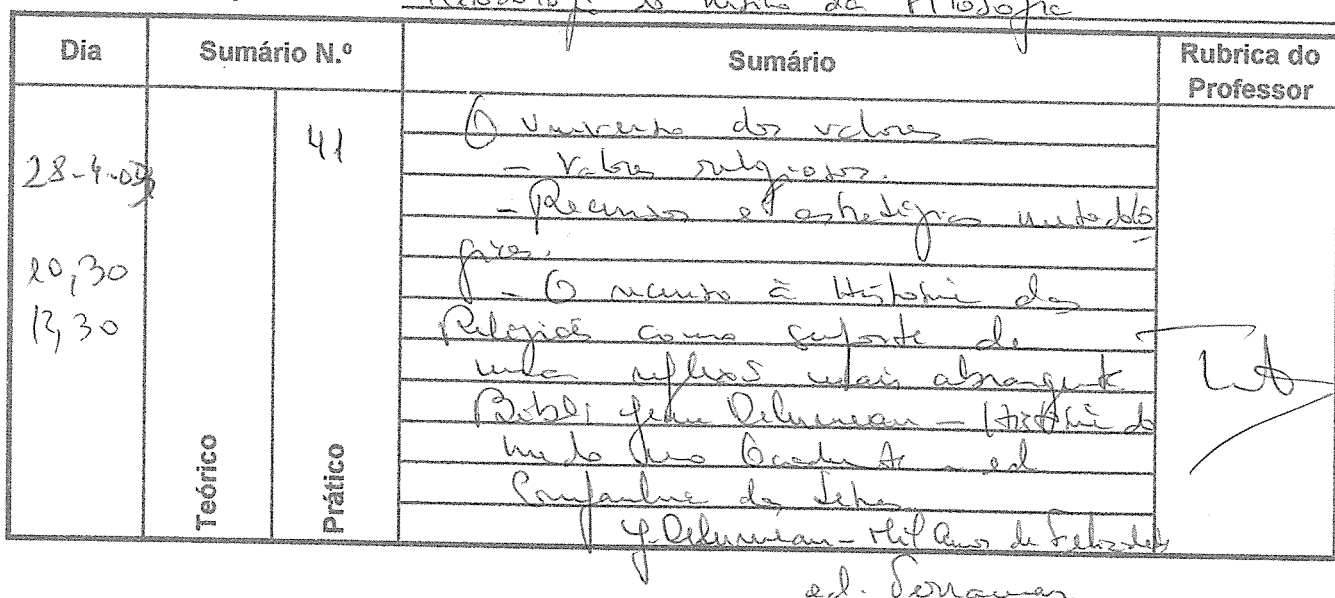 Metodologia do Ensino da Filosofia
Dia Sumário N.º Sumário Rubrica do Professor
28-4-
41
O Universo dos valores -
- Valores religiosos.
- Recursos e estratégias metodoló
gicas.
10,30
12,30
- O recurso à História das
Religiões como suporte de
uma reflexão mais abrangente
Bibli Jean Delumeau - História do
medo no Ocidente - ed
Companhia das Letras
J. Delumeau - Mil Anos de Felicidade
ed. Terramar
Teórico
Prático